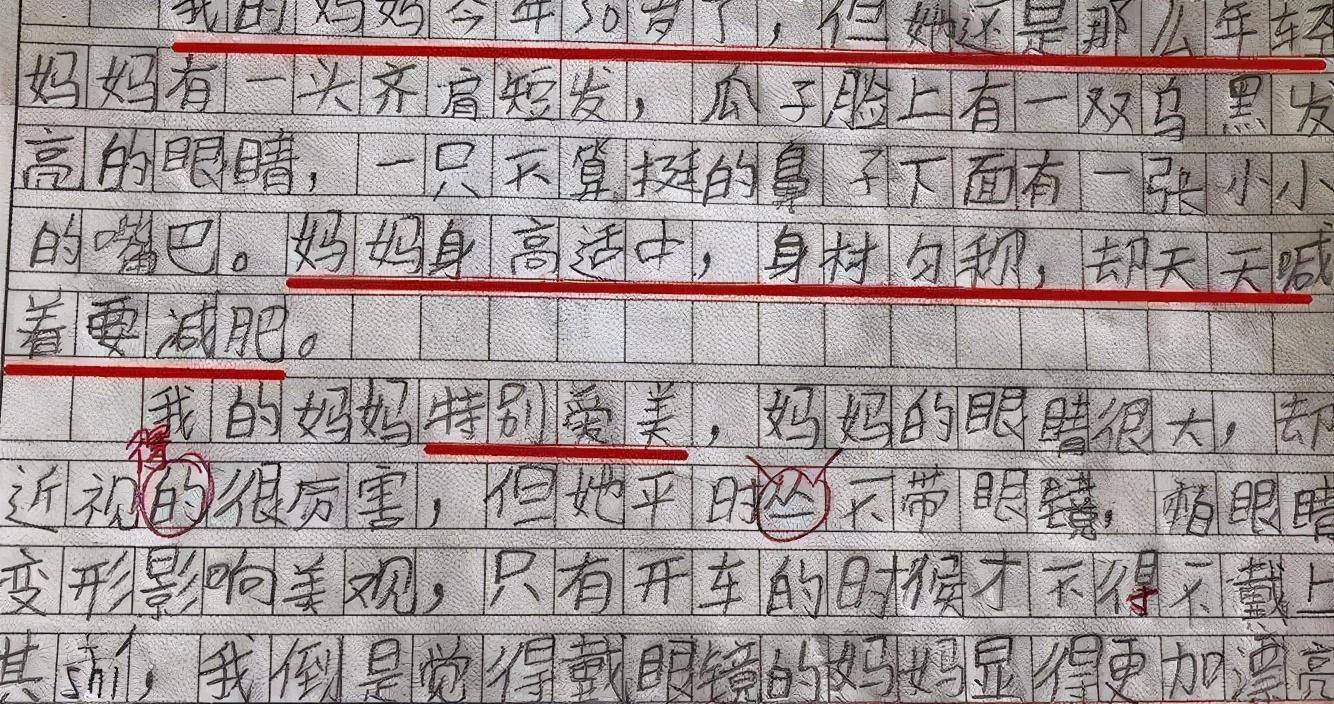 我的妈妈今年30岁了，但她还是那么年轻
妈妈有一头齐肩短发，瓜子脸上有一双乌黑发
高的眼睛，一只不算挺的鼻子下面有一张小小
的嘴巴。妈妈身高适中，身材匀称，却天天喊
着要减肥。
我的妈妈特别爱美，妈妈的眼睛很大，却
得
近视的很厉害，但她平时丛不带眼镜，眼睛
变形影响美观，只有开车的时候才不得不戴上
其shí，我倒是觉得戴眼镜的妈妈显得更加漂亮